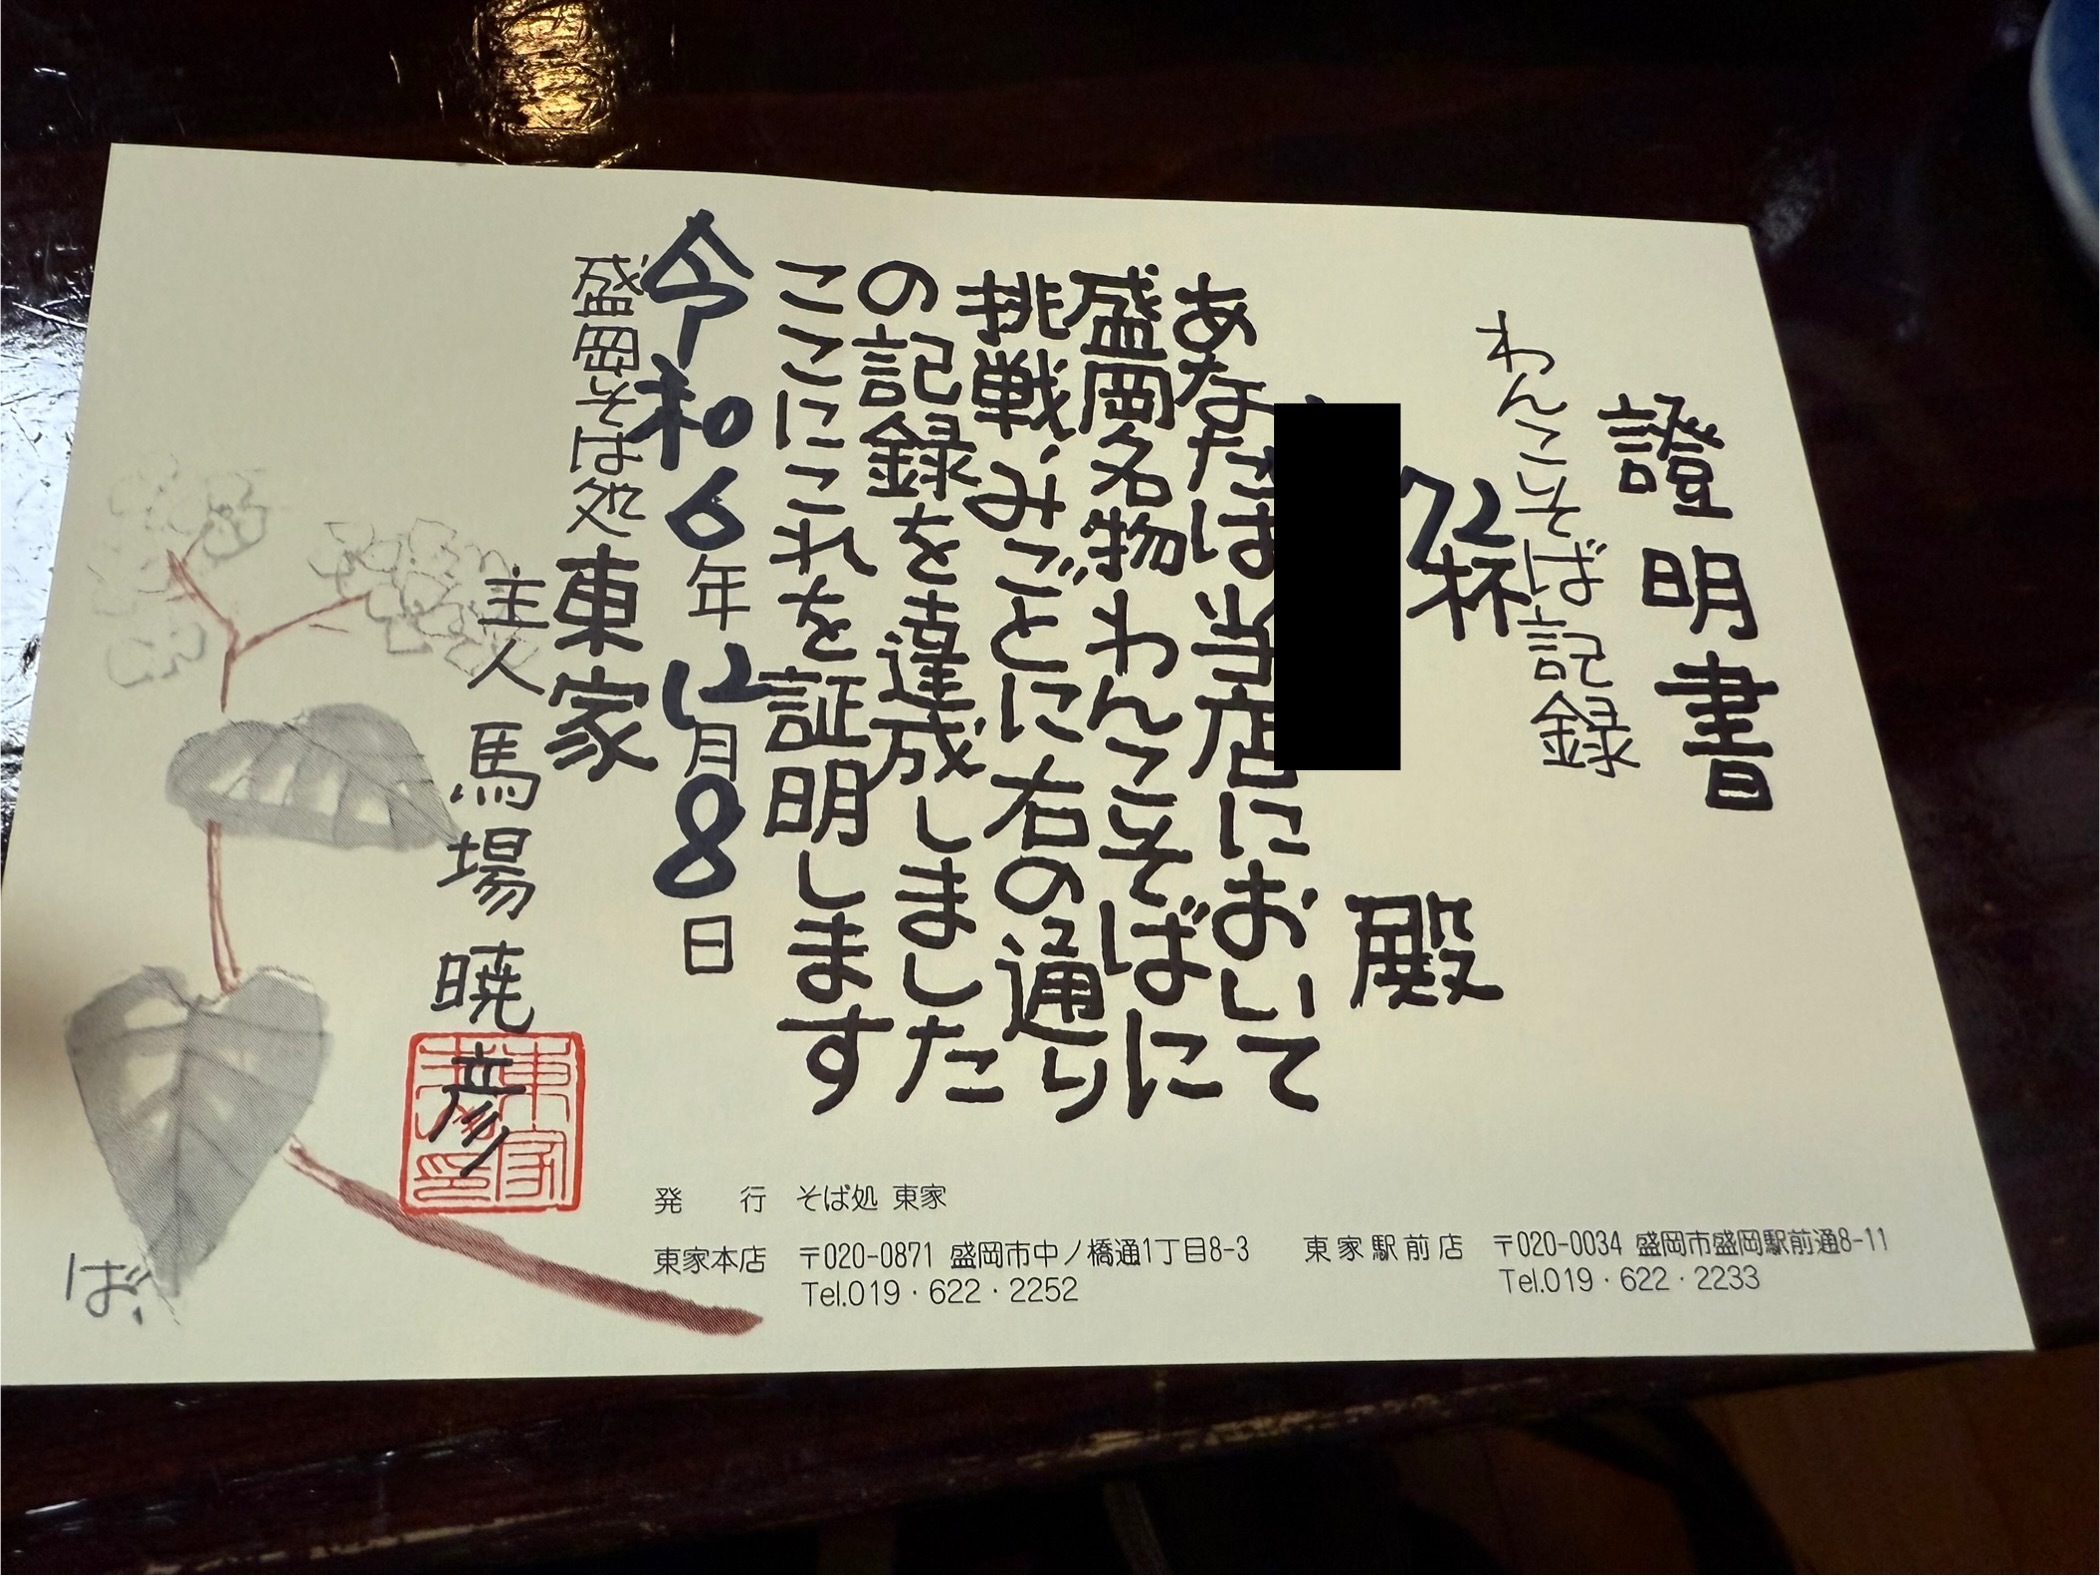 證明書
わんこそば記録
72杯
殿
あなたは当店において
盛岡名物わんこそばに
挑戦、みごとに右の通り
の記録を達成しました
ここにこれを証明します
令和6年12月8日
盛岡そば処 東家
主人 馬場暁彦
東家之印
ば
発 行 そば処 東家
東家本店 〒020-0871 盛岡市中ノ橋通1丁目8-3
Tel.019・622・2252
東家駅前店 〒020-0034 盛岡市盛岡駅前通8-11
Tel.019・622・2233